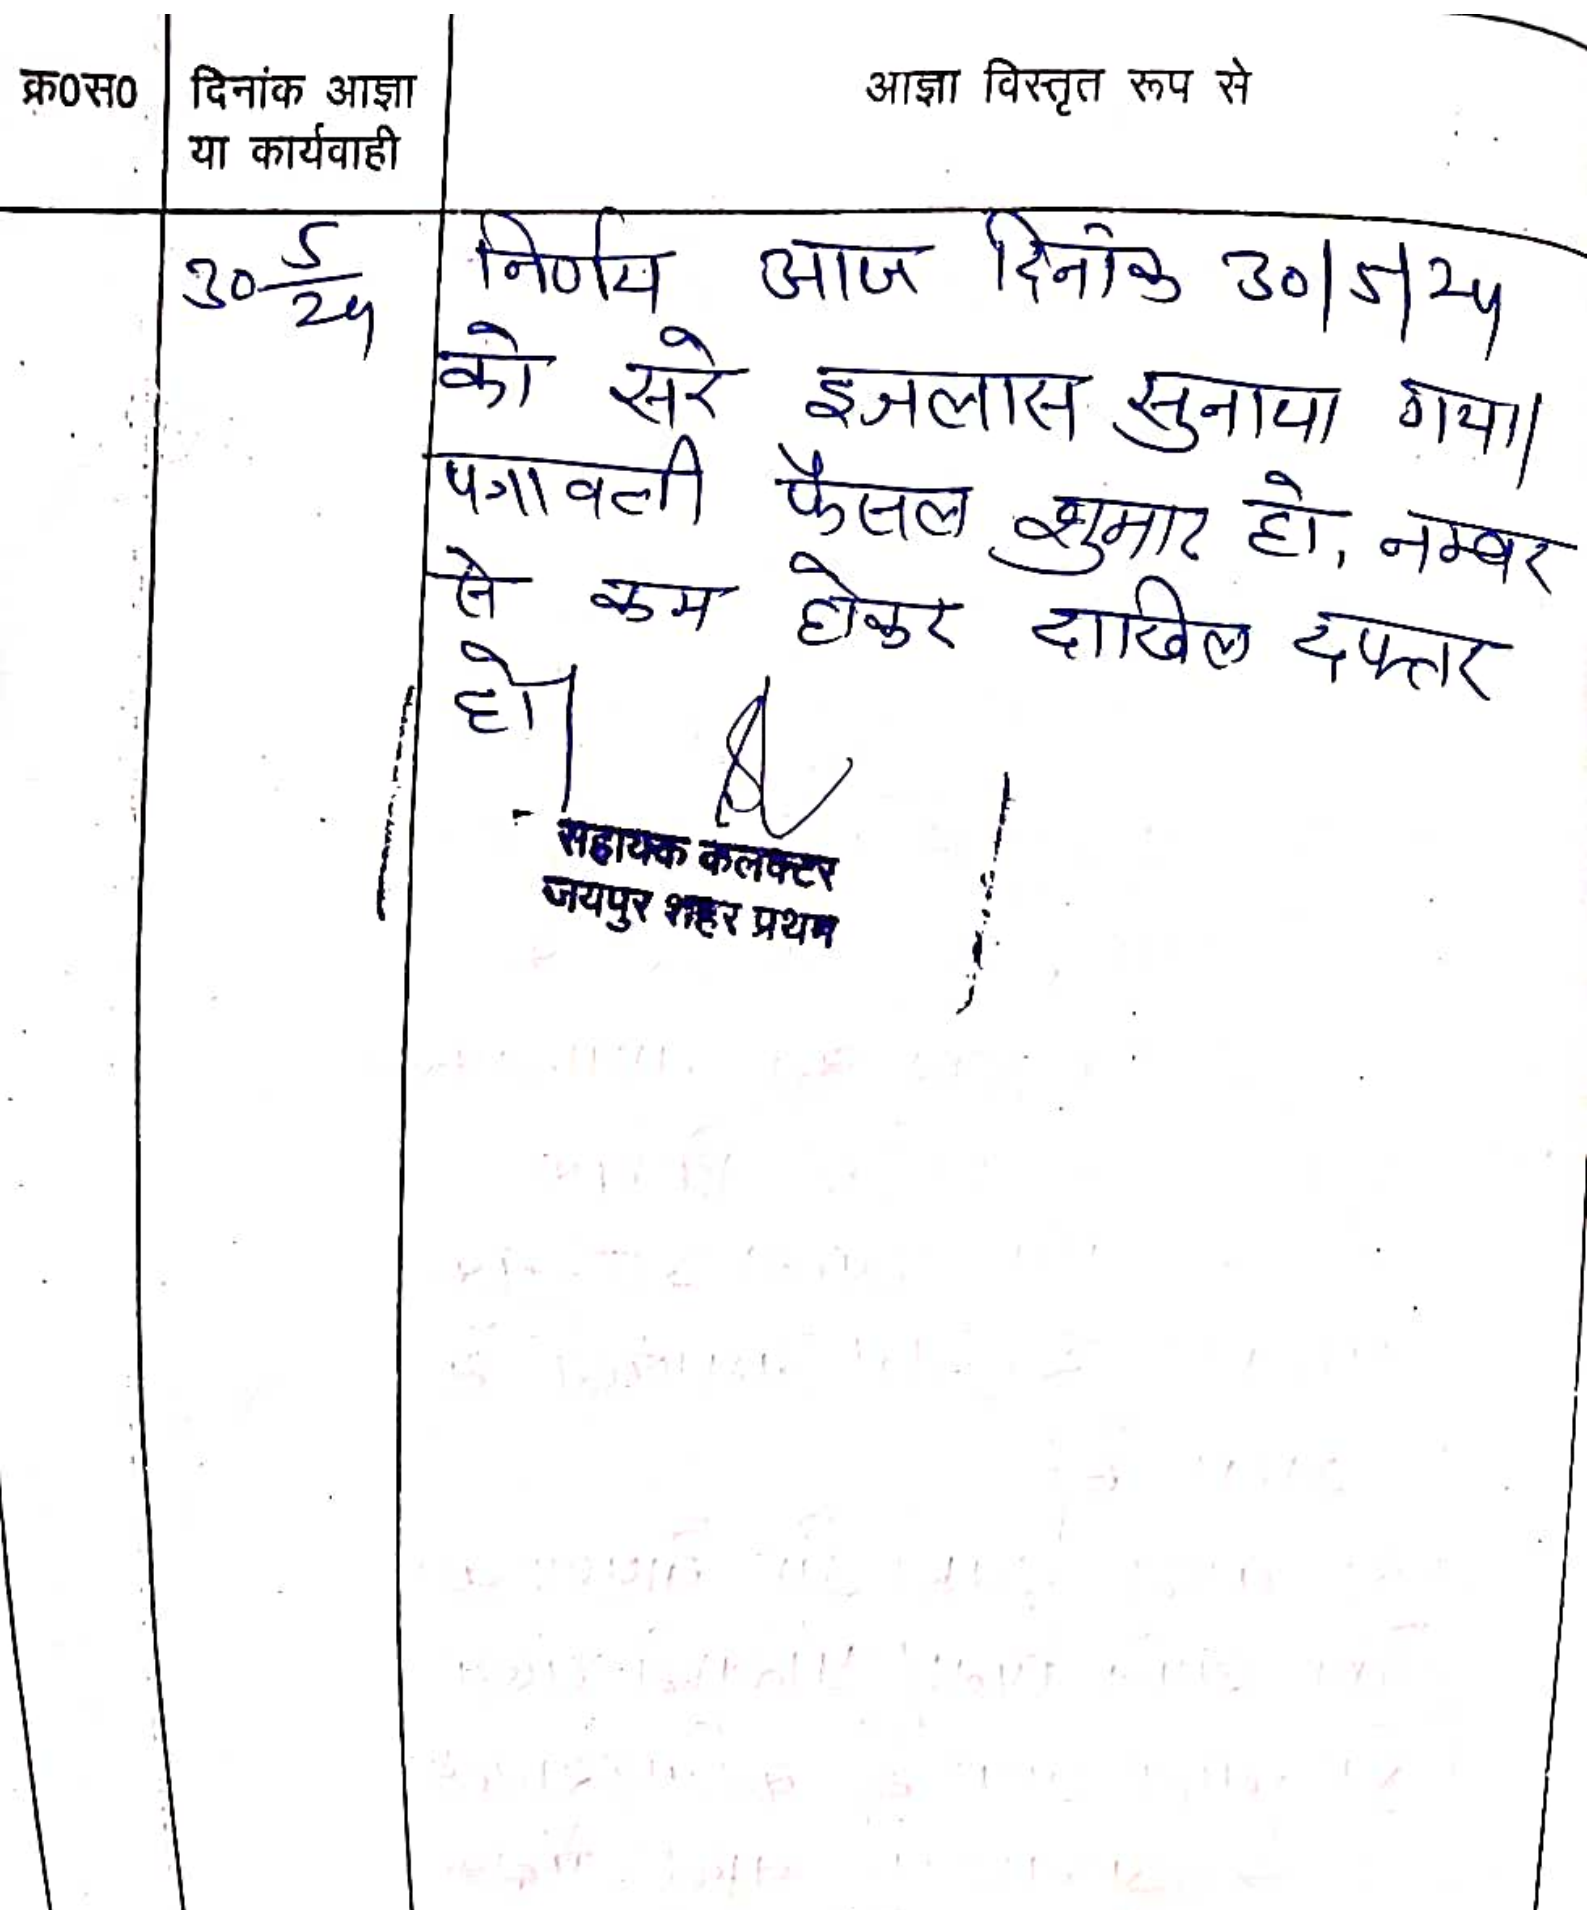 क्र०स० दिनांक आज्ञा आज्ञा विस्तृत रूप से
या कार्यवाही
30 5/24 निर्णय आज दिनांक 30/5/24
को सरे इजलास सुनाया गया।
पत्रावली फैसल शुमार हो, नम्बर
से कम होकर दाखिल दफ्तर
हो।
सहायक कलक्टर
जयपुर शहर प्रथम